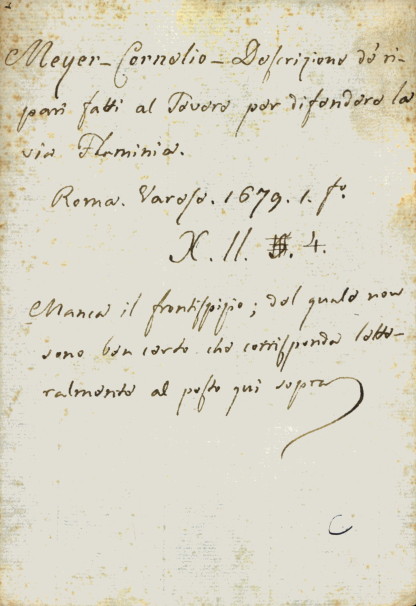 Meyer - Cornelio - Descrizione de' ri-
pari fatti al Tevere per difendere la
via Flaminia.
Roma. Varese. 1679. 1. fo.
X. II. 4.
Manca il frontispizio; del quale non
sono ben certo che corrisponda lette-
ralmente al posto qui sopra
C